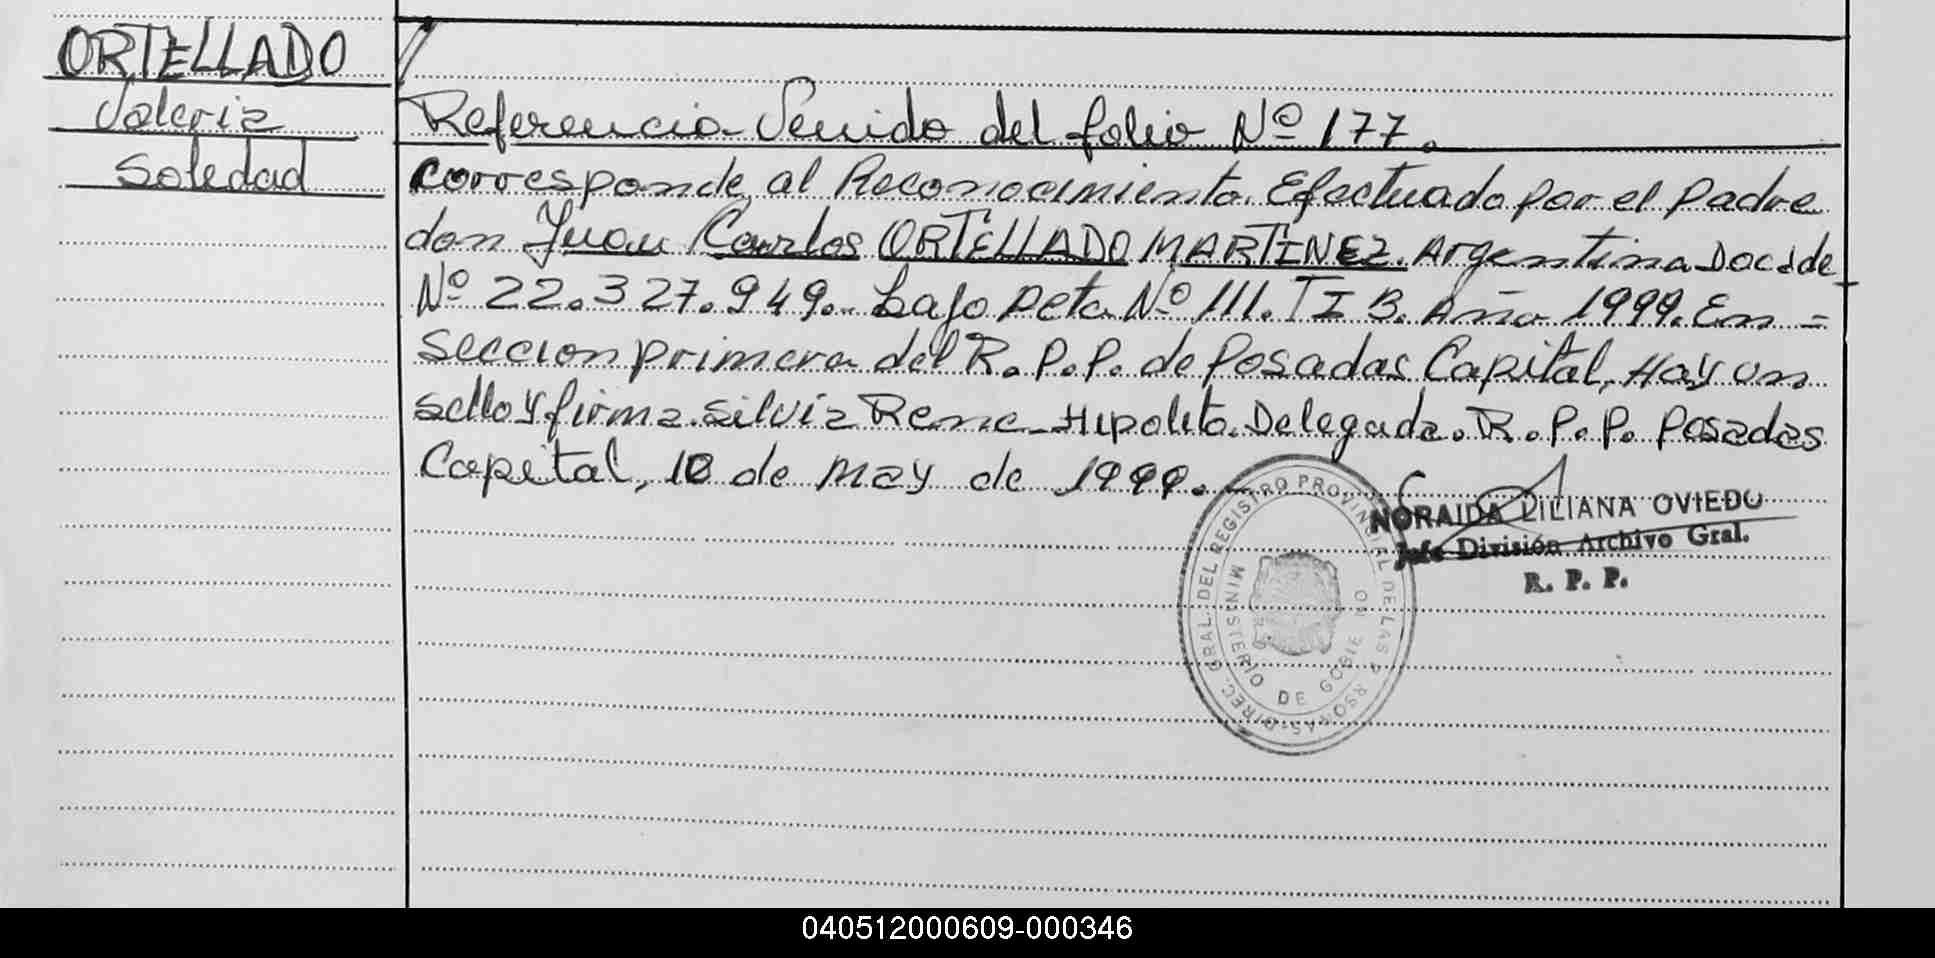 ORTELLADO
Valeria
Soledad
Referencia Venido del folio Nº 177.
corresponde al Reconocimiento Efectuado por el padre
don Juan Carlos ORTELLADO MARTINEZ. Argentina Doc. de
Nº 22.327.949.- bajo Acta Nº 111. T I B. Año 1999. En =
seccion primera del R.P.P. de Posadas Capital, Hay un
sello y firma. Silvia Rene Hipolito. Delegada. R.P.P. Posadas
Capital, 10 de may de 1999.-
NORAIDA LILIANA OVIEDO
Jefe División Archivo Gral.
R. P. P.
DIREC. GRAL. DEL REGISTRO PROVINCIAL DE LAS P RSONAS
MINISTERIO DE GOBIE NO
040512000609-000346